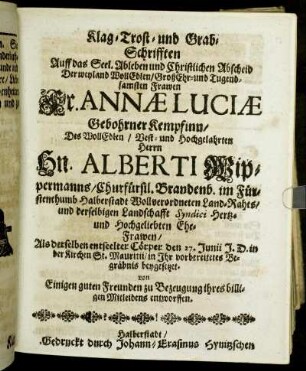 Klag-Trost- und Grab-
Schrifften
Auff das Seel. Ableben und Christlichen Abscheid
Der weyland WollEdlen/ GroßEhr- und Tugend-
samsten Frawen
Fr. ANNÆ LUCIÆ
Gebohrner Kempfinn/
Des WollEdlen / Vest- und Hochgelahrten
Herrn
Hn. ALBERTI Wip-
permanns/ Churfürstl. Brandenb. im Für-
stenthumb Halberstadt Wollverordneten Land-Rahts/
und derselbigen Landschafft Syndici Hertz-
und Hochgeliebten Ehe-
Frawen/
Als derselben entseelter Cörper den 27. Junii J. D. in
der Kirchen St. Mauritii in Ihr vorbereitetes Be-
gräbnis beygesetzet.
von
Einigen guten Freunden zu Bezeugung ihres billi-
gen Mitleidens entworffen.
Halberstadt/
Gedruckt durch Johann-Erasmus Hynitzschen